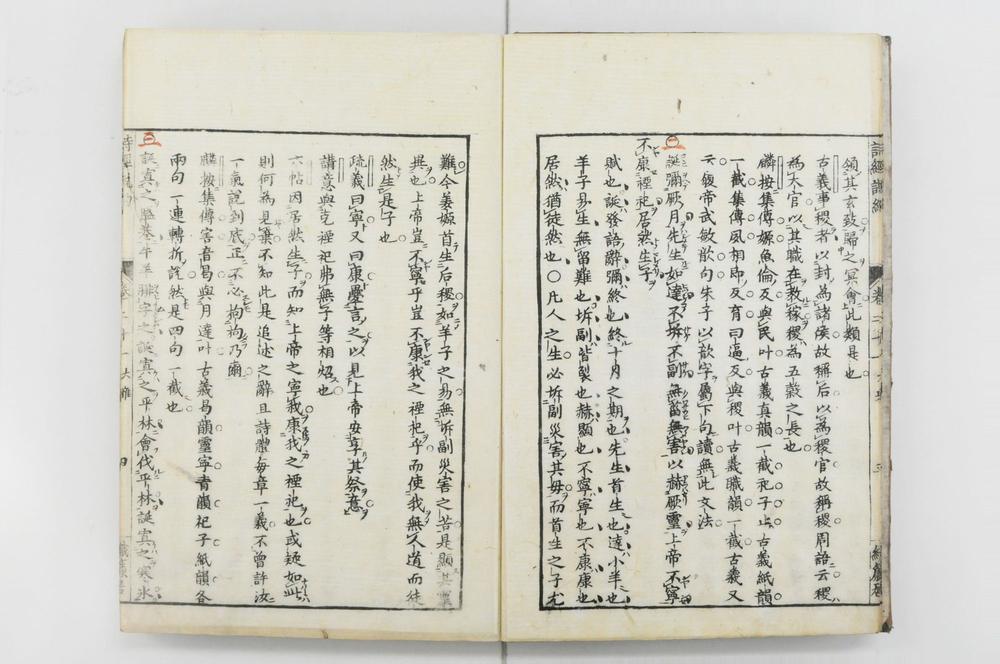 領其玄致歸之冥會此類是也
古義事稷者以封為諸侯故稱后以為稷官故稱稷周語云稷
為大官以其職在教稼穡為五穀之長也
麟按集傳嫄魚倫反與民叶古義真韻一截祀子止古義紙韻
一截集傳夙相即反育曰逼反與稷叶古義職韻一截古義又
云疲帝武敏歆句朱子以歆字屬下句讀無此文法
三
誕彌厥月先生如達不坼不副無菑無害以赫厥靈上帝不寧
不康禋祀居然生子
賦也誕發語辭彌終也終十月之期也先生首生也達小羊也
羊子易生無留難也坼副皆裂也赫顯也不寧寧也不康康也
居然猶徒然也○凡人之生必坼副災害其母而首生之子尤
難今姜嫄首生后稷如羊子之易無坼副災害之苦是顯其靈
異也上帝豈不寧乎豈不康我之禋祀乎而使我無人道而徒
然生是子也
疏義曰寧又曰康疊言之以見上帝安享其祭意
譜意與克禋祀弗無子等相炤也
六帖因居然生子而知上帝之寧我康我之禋祀也或疑如此
則何為見棄不知此是追述之辭且詩體每章一義不曾許汝
一氣說到底正不必拘拘乃爾
麟按集傳害音曷與月達叶古義曷韻靈寧青韻祀子紙韻各
兩句一連轉折詑然是四句一截也
三
誕寘之隘巷牛羊腓字之誕寘之平林會伐平林誕寘之寒氷